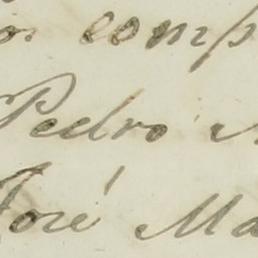 comp
Pedro
José Ma